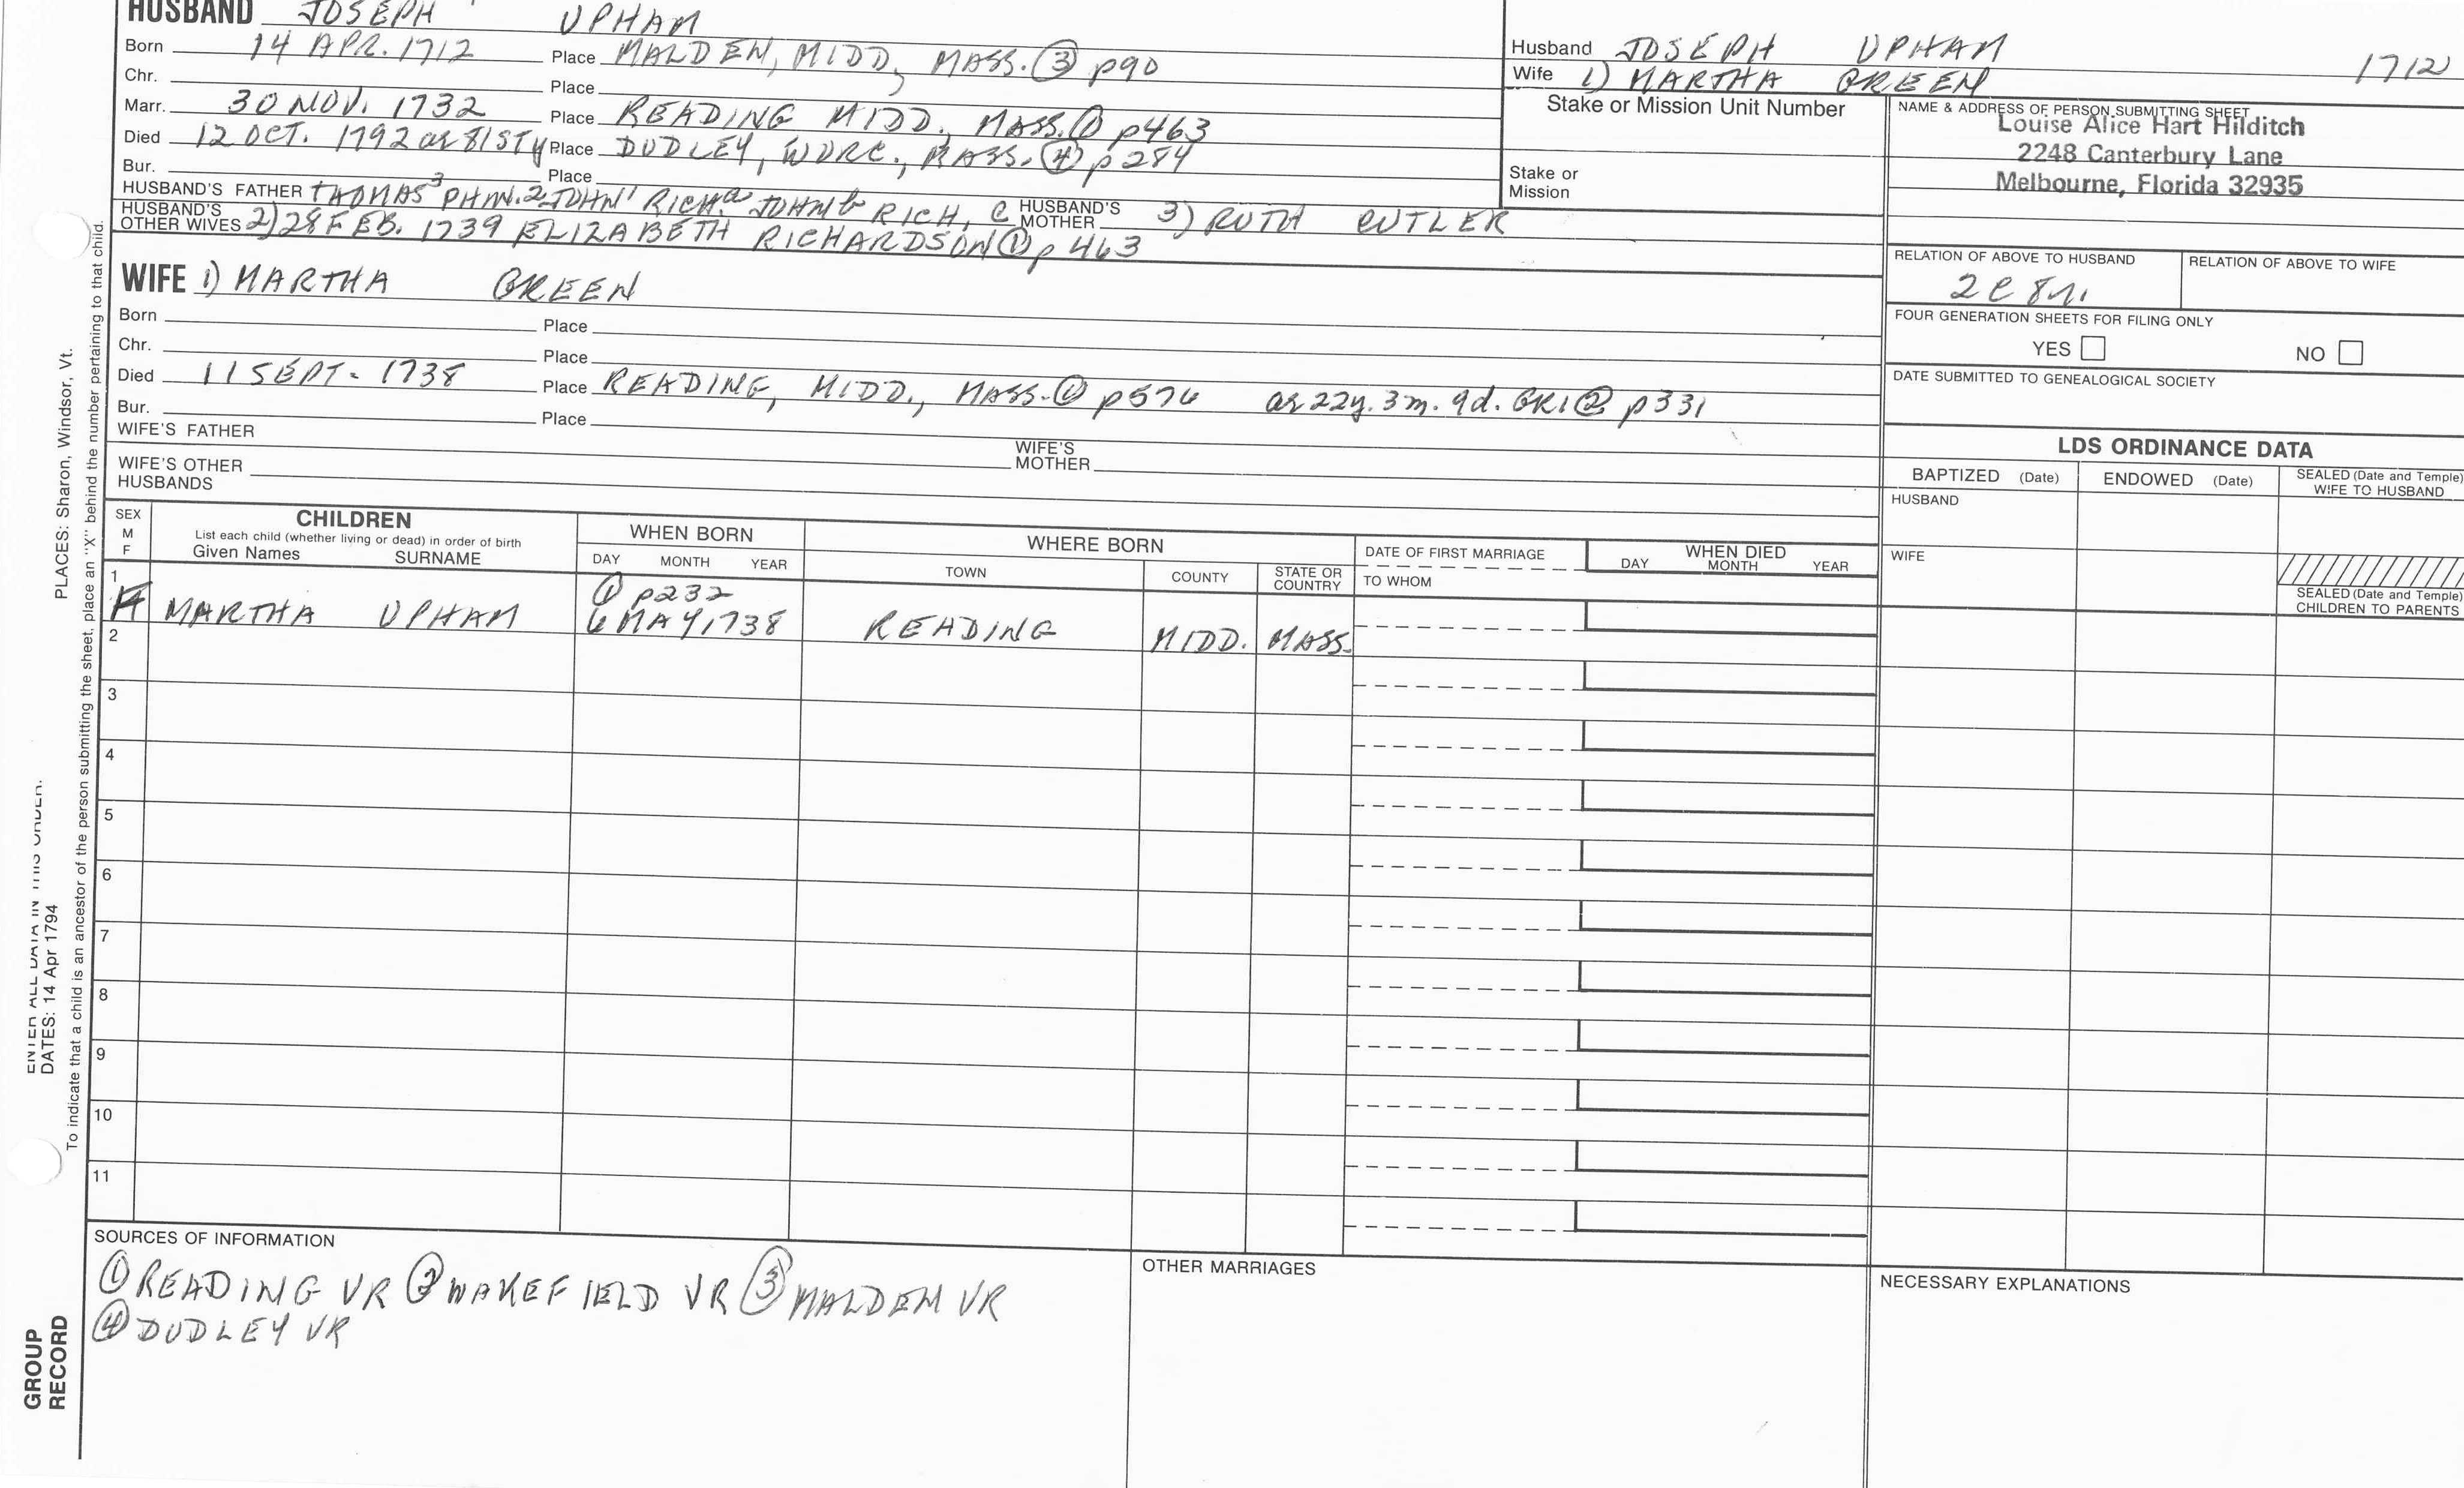 HUSBAND JOSEPH UPHAM
Born 14 APR. 1712 Place MALDEN, MIDD, MASS. ③ p90
Chr. Place
Marr. 30 NOV. 1732 Place READING MIDD., MASS. ① p463
Died 12 OCT. 1792 ae 81STY Place DUDLEY, WORC., MASS. ④ p284
Bur. Place
HUSBAND'S FATHER THOMAS³ PHIN.² JOHN¹ RICH.a JOHN b RICH, c HUSBAND'S MOTHER 3) RUTH CUTLER
HUSBAND'S OTHER WIVES 2) 28 FEB. 1739 ELIZABETH RICHARDSON ① p 463
WIFE 1) MARTHA GREEN
Born Place
Chr. Place
Died 11 SEPT. 1738 Place READING, MIDD., MASS. ① p576 ae 22y. 3m. 9d. GR1 ② p331
Bur. Place
WIFE'S FATHER WIFE'S MOTHER
WIFE'S OTHER HUSBANDS
Husband JOSEPH UPHAM 1712
Wife 1) MARTHA GREEN
Stake or Mission Unit Number
Stake or Mission
NAME & ADDRESS OF PERSON SUBMITTING SHEET
Louise Alice Hart Hilditch
2248 Canterbury Lane
Melbourne, Florida 32935
RELATION OF ABOVE TO HUSBAND RELATION OF ABOVE TO WIFE
2C
FOUR GENERATION SHEETS FOR FILING ONLY
YES NO
DATE SUBMITTED TO GENEALOGICAL SOCIETY
LDS ORDINANCE DATA
BAPTIZED (Date) ENDOWED (Date) SEALED (Date and Temple) WIFE TO HUSBAND
HUSBAND
WIFE
SEALED (Date and Temple) CHILDREN TO PARENTS
SEX M F
CHILDREN
List each child (whether living or dead) in order of birth
Given Names SURNAME
WHEN BORN
DAY MONTH YEAR
WHERE BORN
TOWN COUNTY STATE OR COUNTRY
DATE OF FIRST MARRIAGE
TO WHOM
WHEN DIED
DAY MONTH YEAR
1 ① p232
F MARTHA UPHAM 6 MAY 1738 READING MIDD. MASS.
2
3
4
5
6
7
8
9
10
11
SOURCES OF INFORMATION
① READING VR ② WAKEFIELD VR ③ MALDEN VR
④ DUDLEY VR
OTHER MARRIAGES
NECESSARY EXPLANATIONS
GROUP
RECORD
ENTER ALL DATA IN THIS ORDER.
DATES: 14 Apr 1794
PLACES: Sharon, Windsor, Vt.
To indicate that a child is an ancestor of the person submitting the sheet, place an "X" behind the number pertaining to that child.